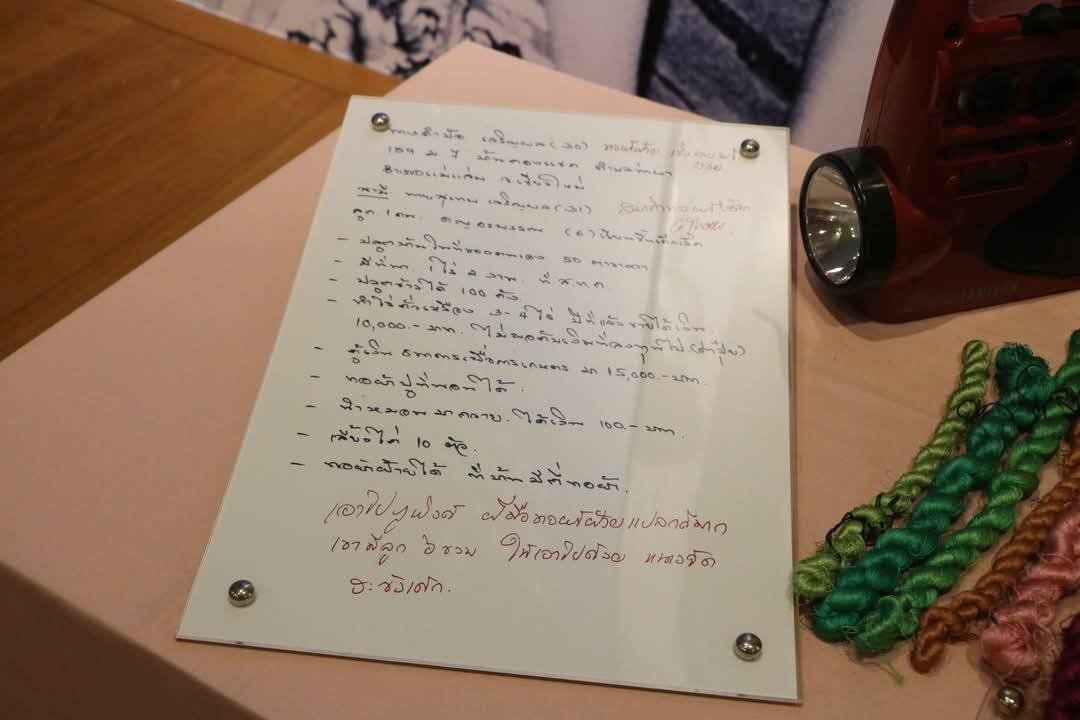 เจริญผล (30) ทอผ้าฝ้าย
159 ม. 7 ตำบลท่าผา
อำเภอแม่แจ่ม จ.เชียงใหม่
สามี นายสุเทพ เจริญผล (31)
ลูก 1 คน. (6)
- ปลูกบ้านในที่ของตนเอง 50 ตารางวา
- มีที่นา 1 ไร่ 2 งาน. ที่ ส.ท.ก.
- ปลูกข้าวได้ 100 ถัง.
- ทำไร่ถั่วเหลือง 3-4 ไร่ ปีที่แล้วขายได้เงิน
10,000.- บาท. ไม่พอกับเงินที่ลงทุนไป (ค่าปุ๋ย)
- กู้เงิน ธนาคารเพื่อการเกษตร มา 15,000.- บาท.
- ทอผ้าปูที่นอนได้.
- หมอนมาถวาย. ได้เงิน 100.- บาท.
- เลี้ยงไก่ 10 ตัว.
- ทอผ้าฝ้ายได้ ที่บ้านมีกี่ทอผ้า.
เอาไป ฝีมือทอผ้าฝ้ายแปลกดีมาก
เขามีลูก 6 ขวบ ให้เอาไปด้วย